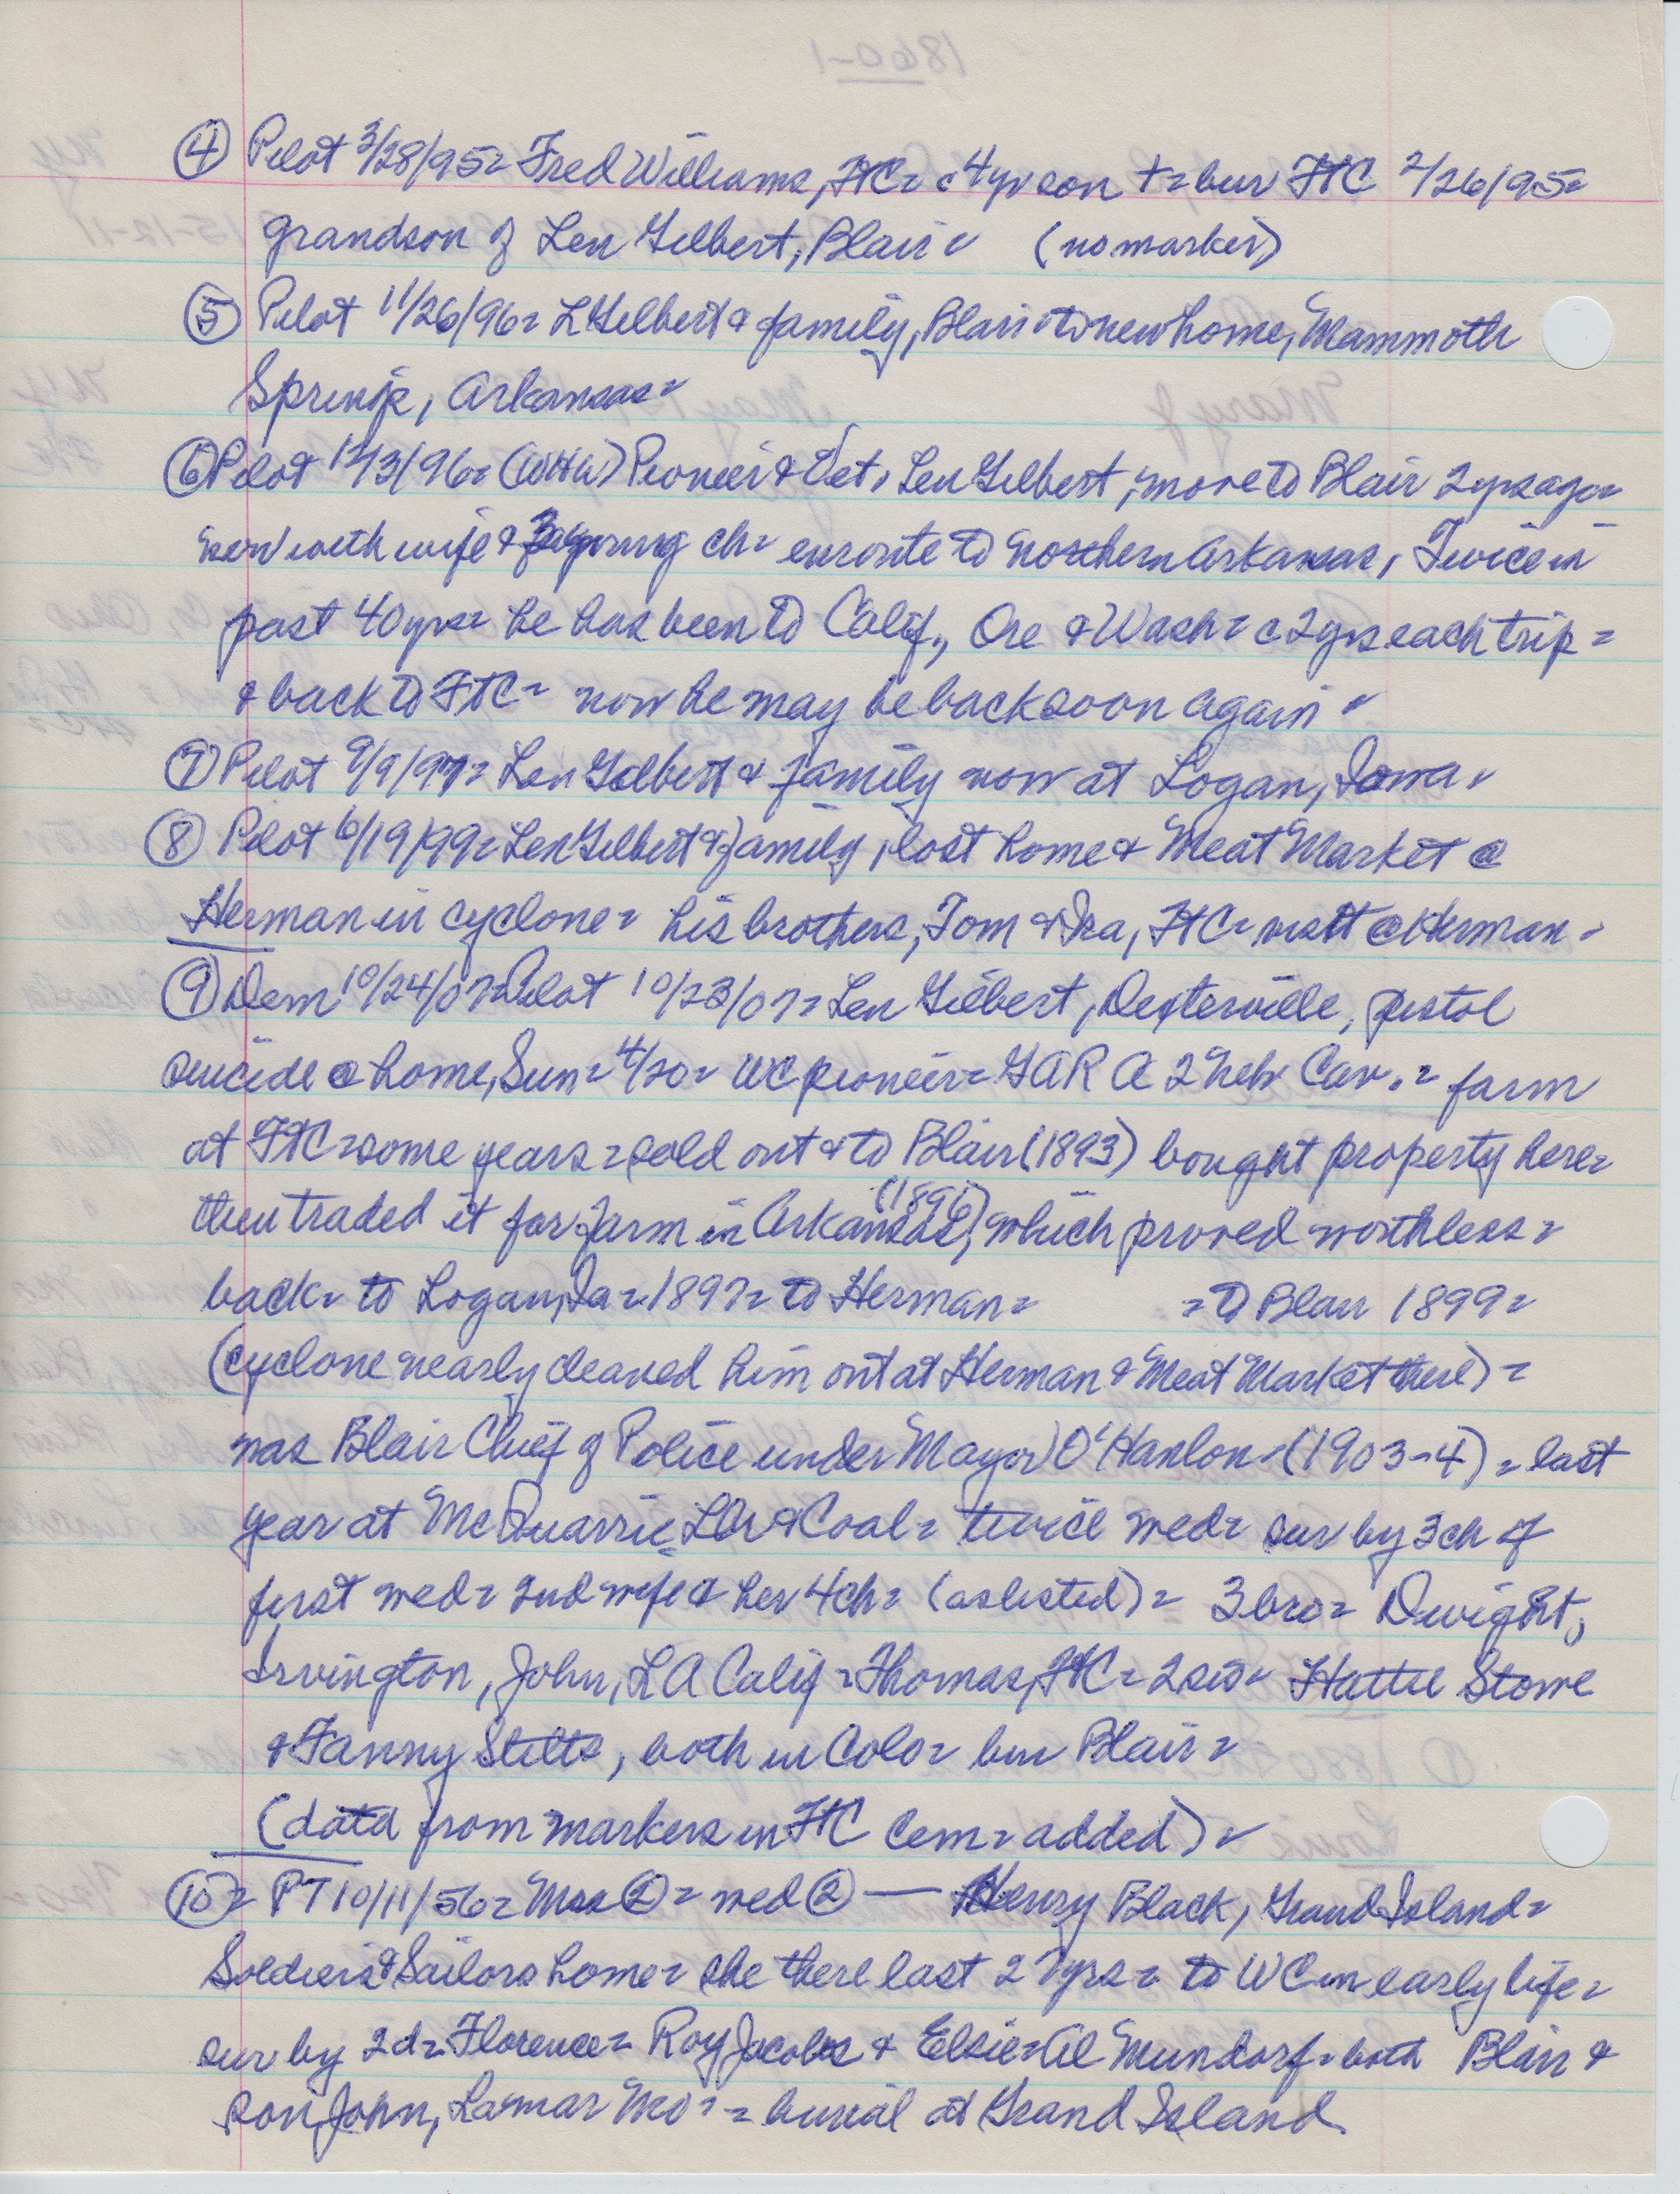 ④ Pilot 3/28/95= Fred Williams, FtC= c 4yr son += bur FtC 2/26/95=
grandson of Len Gilbert, Blair= (no marker)
⑤ Pilot 11/26/96= L Gilbert & family, Blair= to new home, Mammoth
Springs, Arkansas=
⑥ Pilot 12/3/96= (WHW) Pioneer & Vet, Len Gilbert, move to Blair 2yrs ago=
now with wife & 3 young ch= enroute to northern Arkansas, Twice in
past 40yrs= he has been to Calif., Ore & Wash= c 2yrs each trip=
& back to FtC= now he may be back soon again=
⑦ Pilot 9/9/97= Len Gilbert & family now at Logan, Iowa=
⑧ Pilot 6/19/99= Len Gilbert & family, lost home & Meat Market @
Herman in cyclone= his brothers, Tom & Ira, FtC= visit @ Herman=
⑨ Dem 10/24/07= Pilot 10/23/07= Len Gilbert, Dexterville, pistol
suicide @ home, Sun= 4/20= WC pioneer= GAR A 2 Neb Cav.= farm
at FtC= some years= sold out & to Blair (1893) bought property here=
then traded it for farm in Arkansas, (1896) which proved worthless=
back= to Logan, Ia= 1897= to Herman= =to Blair 1899=
(cyclone nearly cleaned him out at Herman & Meat Market there)=
was Blair Chief of Police under Mayor O'Hanlon= (1903-4)= last
year at McQuarrie Lbr & Coal= twice wed= sur by 3ch of
first wed= 2nd wife & her 4ch= (as listed)= 3 bro= Dwight,
Irvington, John, LA Calif= Thomas, FtC= 2 sis= Hattie Stowe
& Fanny Stilts, both in Colo= bur Blair=
(data from markers in FtC Cem= added)=
⑩= PT 10/11/56= Mrs ②= wed ② — Henry Black, Grand Island=
Soldiers & Sailors home= she there last 27yrs= to WC in early life=
sur by 2d= Florence= Roy Jacobs & Elsie= Al Mundorf= both Blair &
son John, Lamar Mo== burial at Grand Island